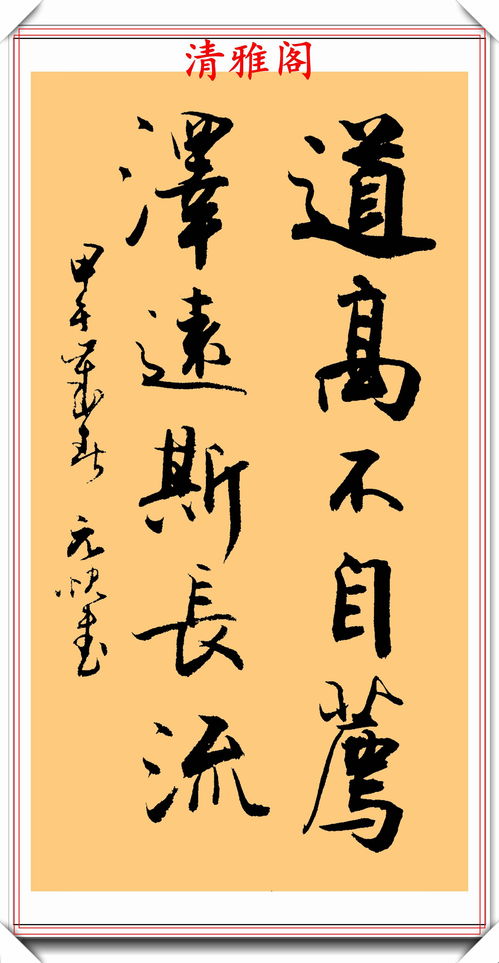 清雅阁
道高不自薦
澤遠斯長流
甲午歲春 元快書